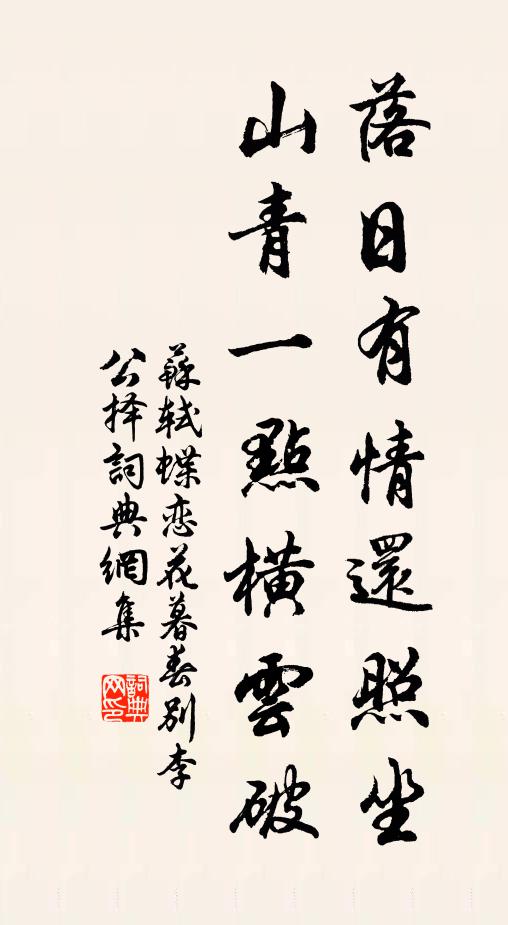 落日有情還照坐
山青一點橫雲破
蘇軾蝶恋花暮春別李
公择詞典網集
詞典网印